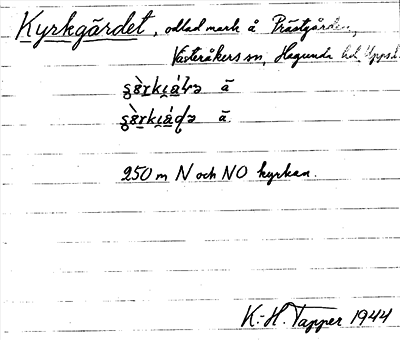 Kyrkgärdet, odlad mark å Prästgården,
Västeråkers sn, Hagunda hd, Upps.l.
å
å
250 m N och NO kyrkan.
K.-H. Tapper 1944